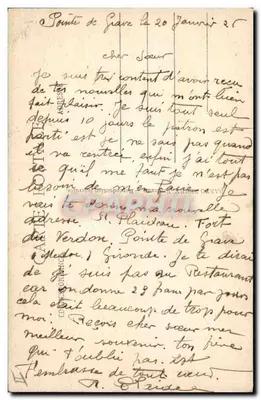 Pointe de Grave le 20 Janvier 26
cher Sœur
Je suis très content d'avoir recu
de tes nouvelles qui m'ont bien
fait plaisir. Je suis tout seul
depuis 10 jours le patron est
parti je ne sais pas quand
il va rentrer enfin j'ai tout
se qu'il me faut je n'est pas
besoin de m'en faire. Je
vais te donner ma nouvelle
adresse Fort
du Verdon, Pointe de Grave
(Medoc) Gironde. Je te dirai
que je suis pas au Restaurant
car on donne 23 frans par jours
cela était beaucoup de trop pour
moi. Recois cher sœur mon
meilleur souvenir. ton frère
qui t'oublie pas. et
t'embrasse de tout cœur.
CARTE POSTALE